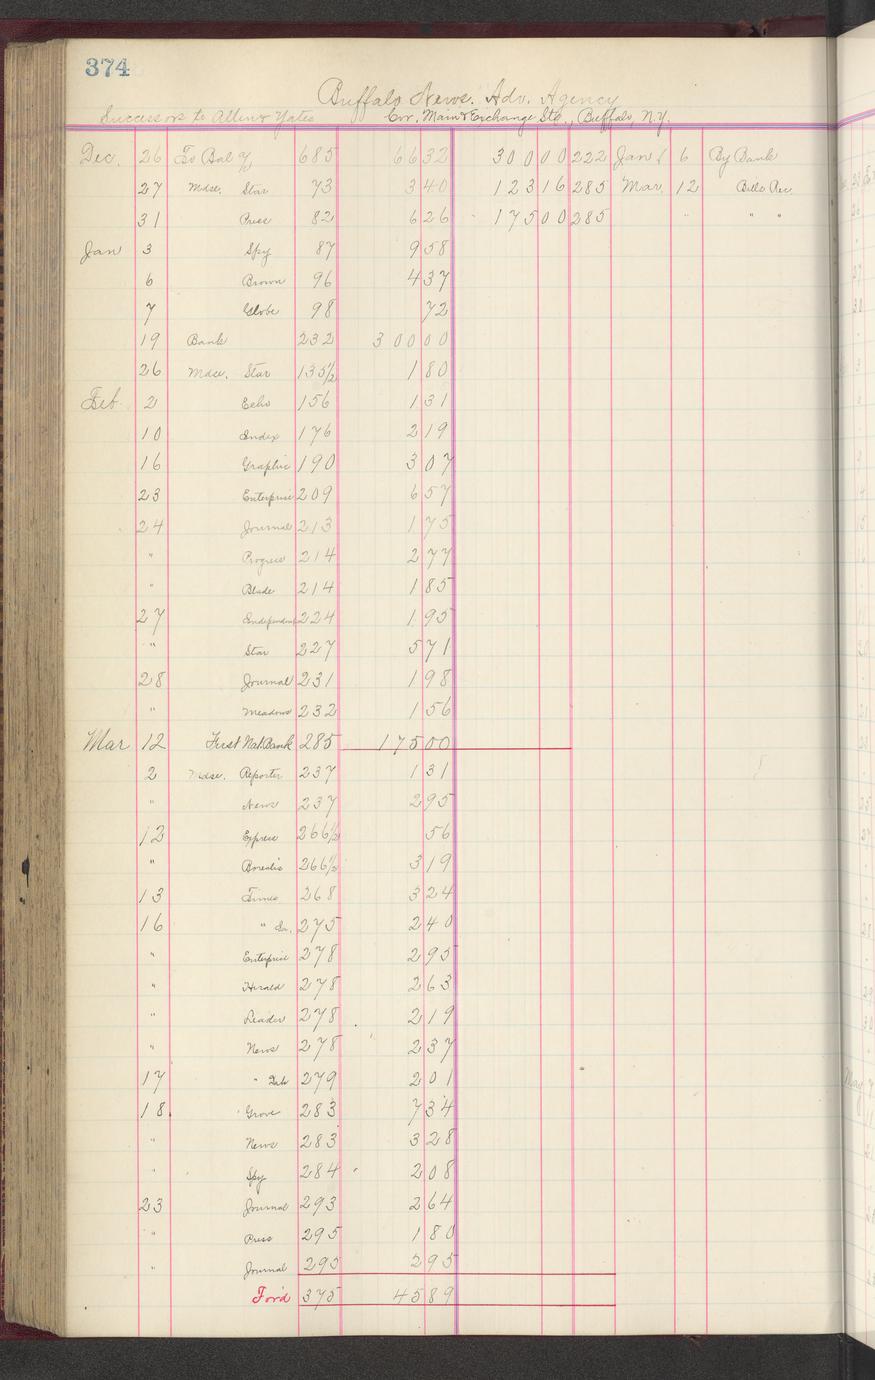 374
Buffalo News. Adv. Agency
Successors to Allen & Yates Cor. Main & Exchange Sts., Buffalo, N.Y.
Dec. 26 To Bal 685 66 32 300 00 222 Jan 6 By Bank
27 Mdse. Star 73 3 40 123 16 285 Mar 12 Bills Rec.
31 Press 82 6 26 175 00 285 " " "
Jan 3 Spy 87 9 58
6 Brown 96 4 37
7 Globe 98 72
19 Bank 232 300 00
26 Mdse. Star 135½ 1 80
Feb. 2 Echo 156 1 31
10 Index 176 2 19
16 Graphic 190 3 07
23 Enterprise 209 6 57
24 Journal 213 1 75
" Progress 214 2 77
" Blade 214 1 85
27 Independent 224 1 95
" Star 227 5 71
28 Journal 231 1 98
" Meadows 232 1 56
Mar 12 First Nat. Bank 285 175 00
2 Mdse. Reporter 237 1 31
" News 237 2 95
12 Express 266½ 56
" Borealis 266½ 3 19
13 Times 268 3 24
16 " 275 2 40
" Enterprise 278 2 95
" Herald 278 2 63
" Leader 278 2 19
" News 278 2 37
17 " 279 2 01
18 Grove 283 7 34
" News 283 3 28
" Spy 284 2 08
23 Journal 293 2 64
" Press 295 1 80
" Journal 295 2 95
For'd 375 45 89